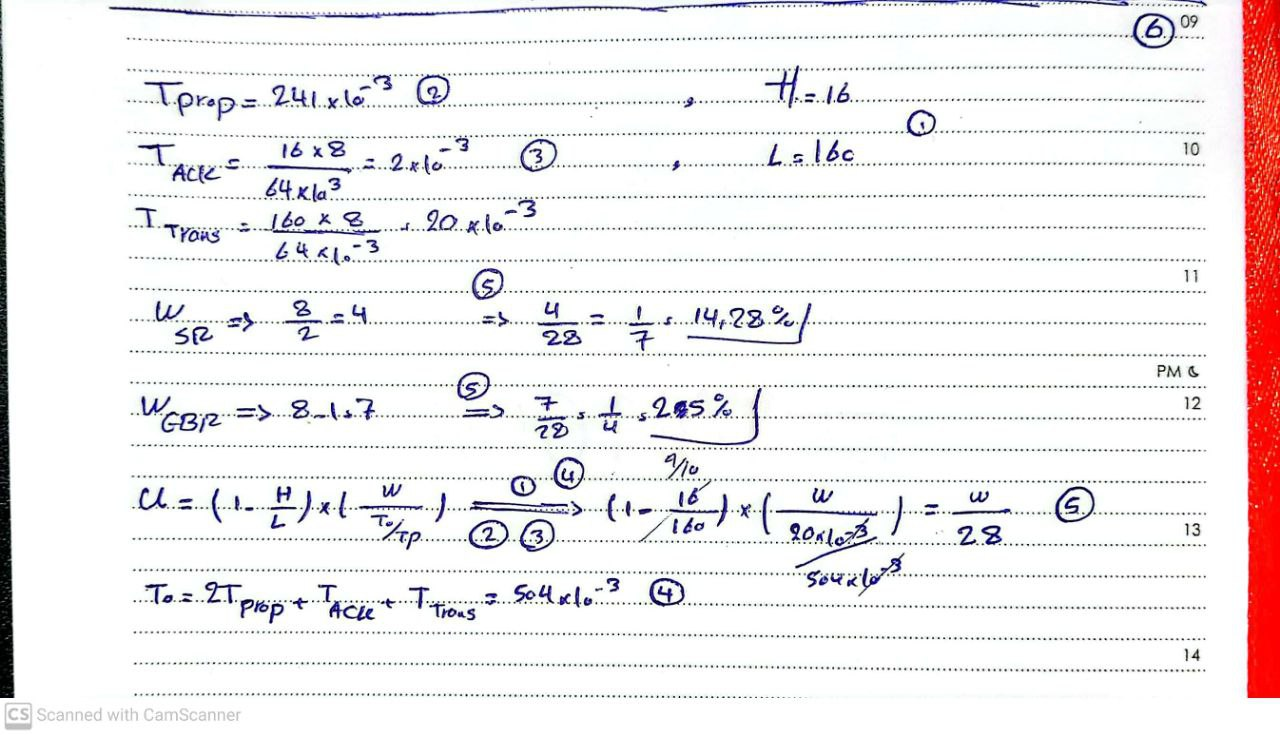 ⑥ 09
Tprop = 241 x 10^-3 ② , H = 16
①
T ACK = 16 x 8 / 64 x 10^3 = 2 x 10^-3 ③ , L = 160 10
T Trans = 160 x 8 / 64 x 10^-3 = 20 x 10^-3
11
W SR => 8/2 = 4 ⑤ => 4/28 = 1/7 = 14,28%
PM
W GBR => 8-1=7 ⑤ => 7/28 = 1/4 = 25% 12
9/10
U = (1 - H/L) x (W / To/TP) ① ④ ② ③ => (1 - 16/160) x (W / 20x10^-3 / 504x10^-3) = W/28 ⑤ 13
To = 2Tprop + T ACK + T Trans = 504 x 10^-3 ④
14
CS Scanned with CamScanner